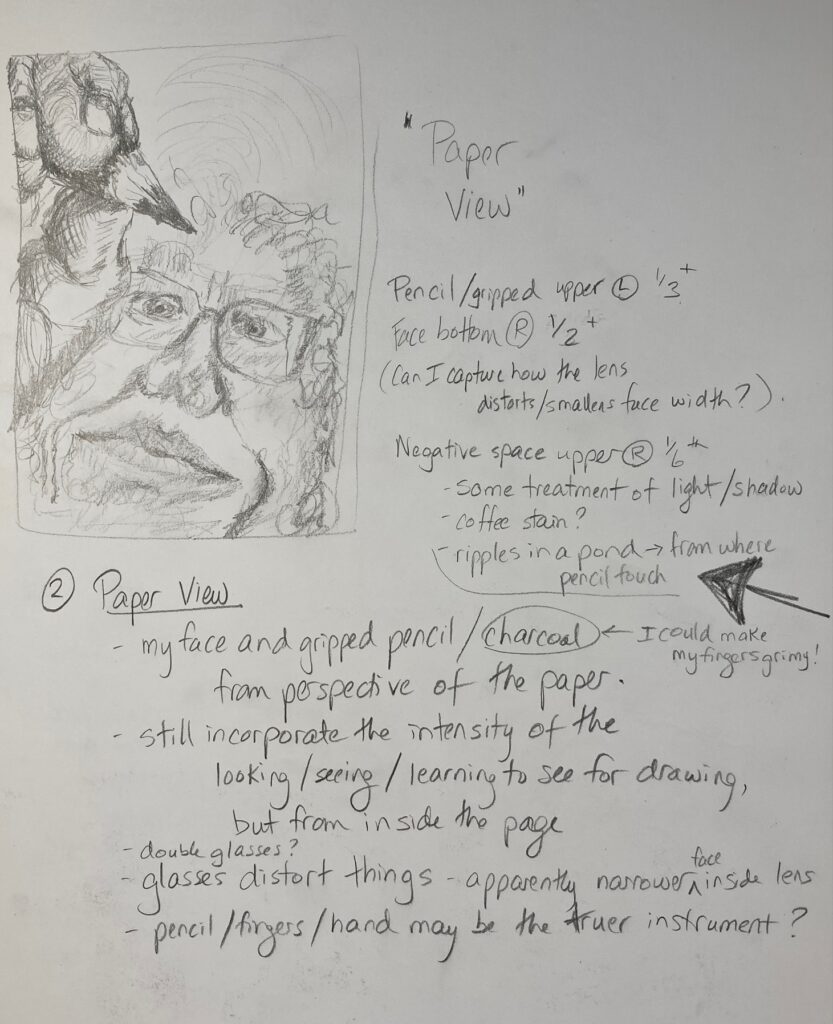 "Paper
View"
Pencil/gripped upper Ⓛ 1/3+
Face bottom Ⓡ 1/2+
(Can I capture how the lens
distorts/smallens face width?).
Negative space upper Ⓡ 1/6th
- some treatment of light/shadow
- coffee stain?
- ripples in a pond → from where
pencil touch
② Paper View
- my face and gripped pencil/charcoal ← I could make
my fingers grimy!
from perspective of the paper.
- still incorporate the intensity of the
looking/seeing/learning to see for drawing,
but from inside the page
- double glasses?
- glasses distort things - apparently narrower face inside lens
- pencil/fingers/hand may be the truer instrument?